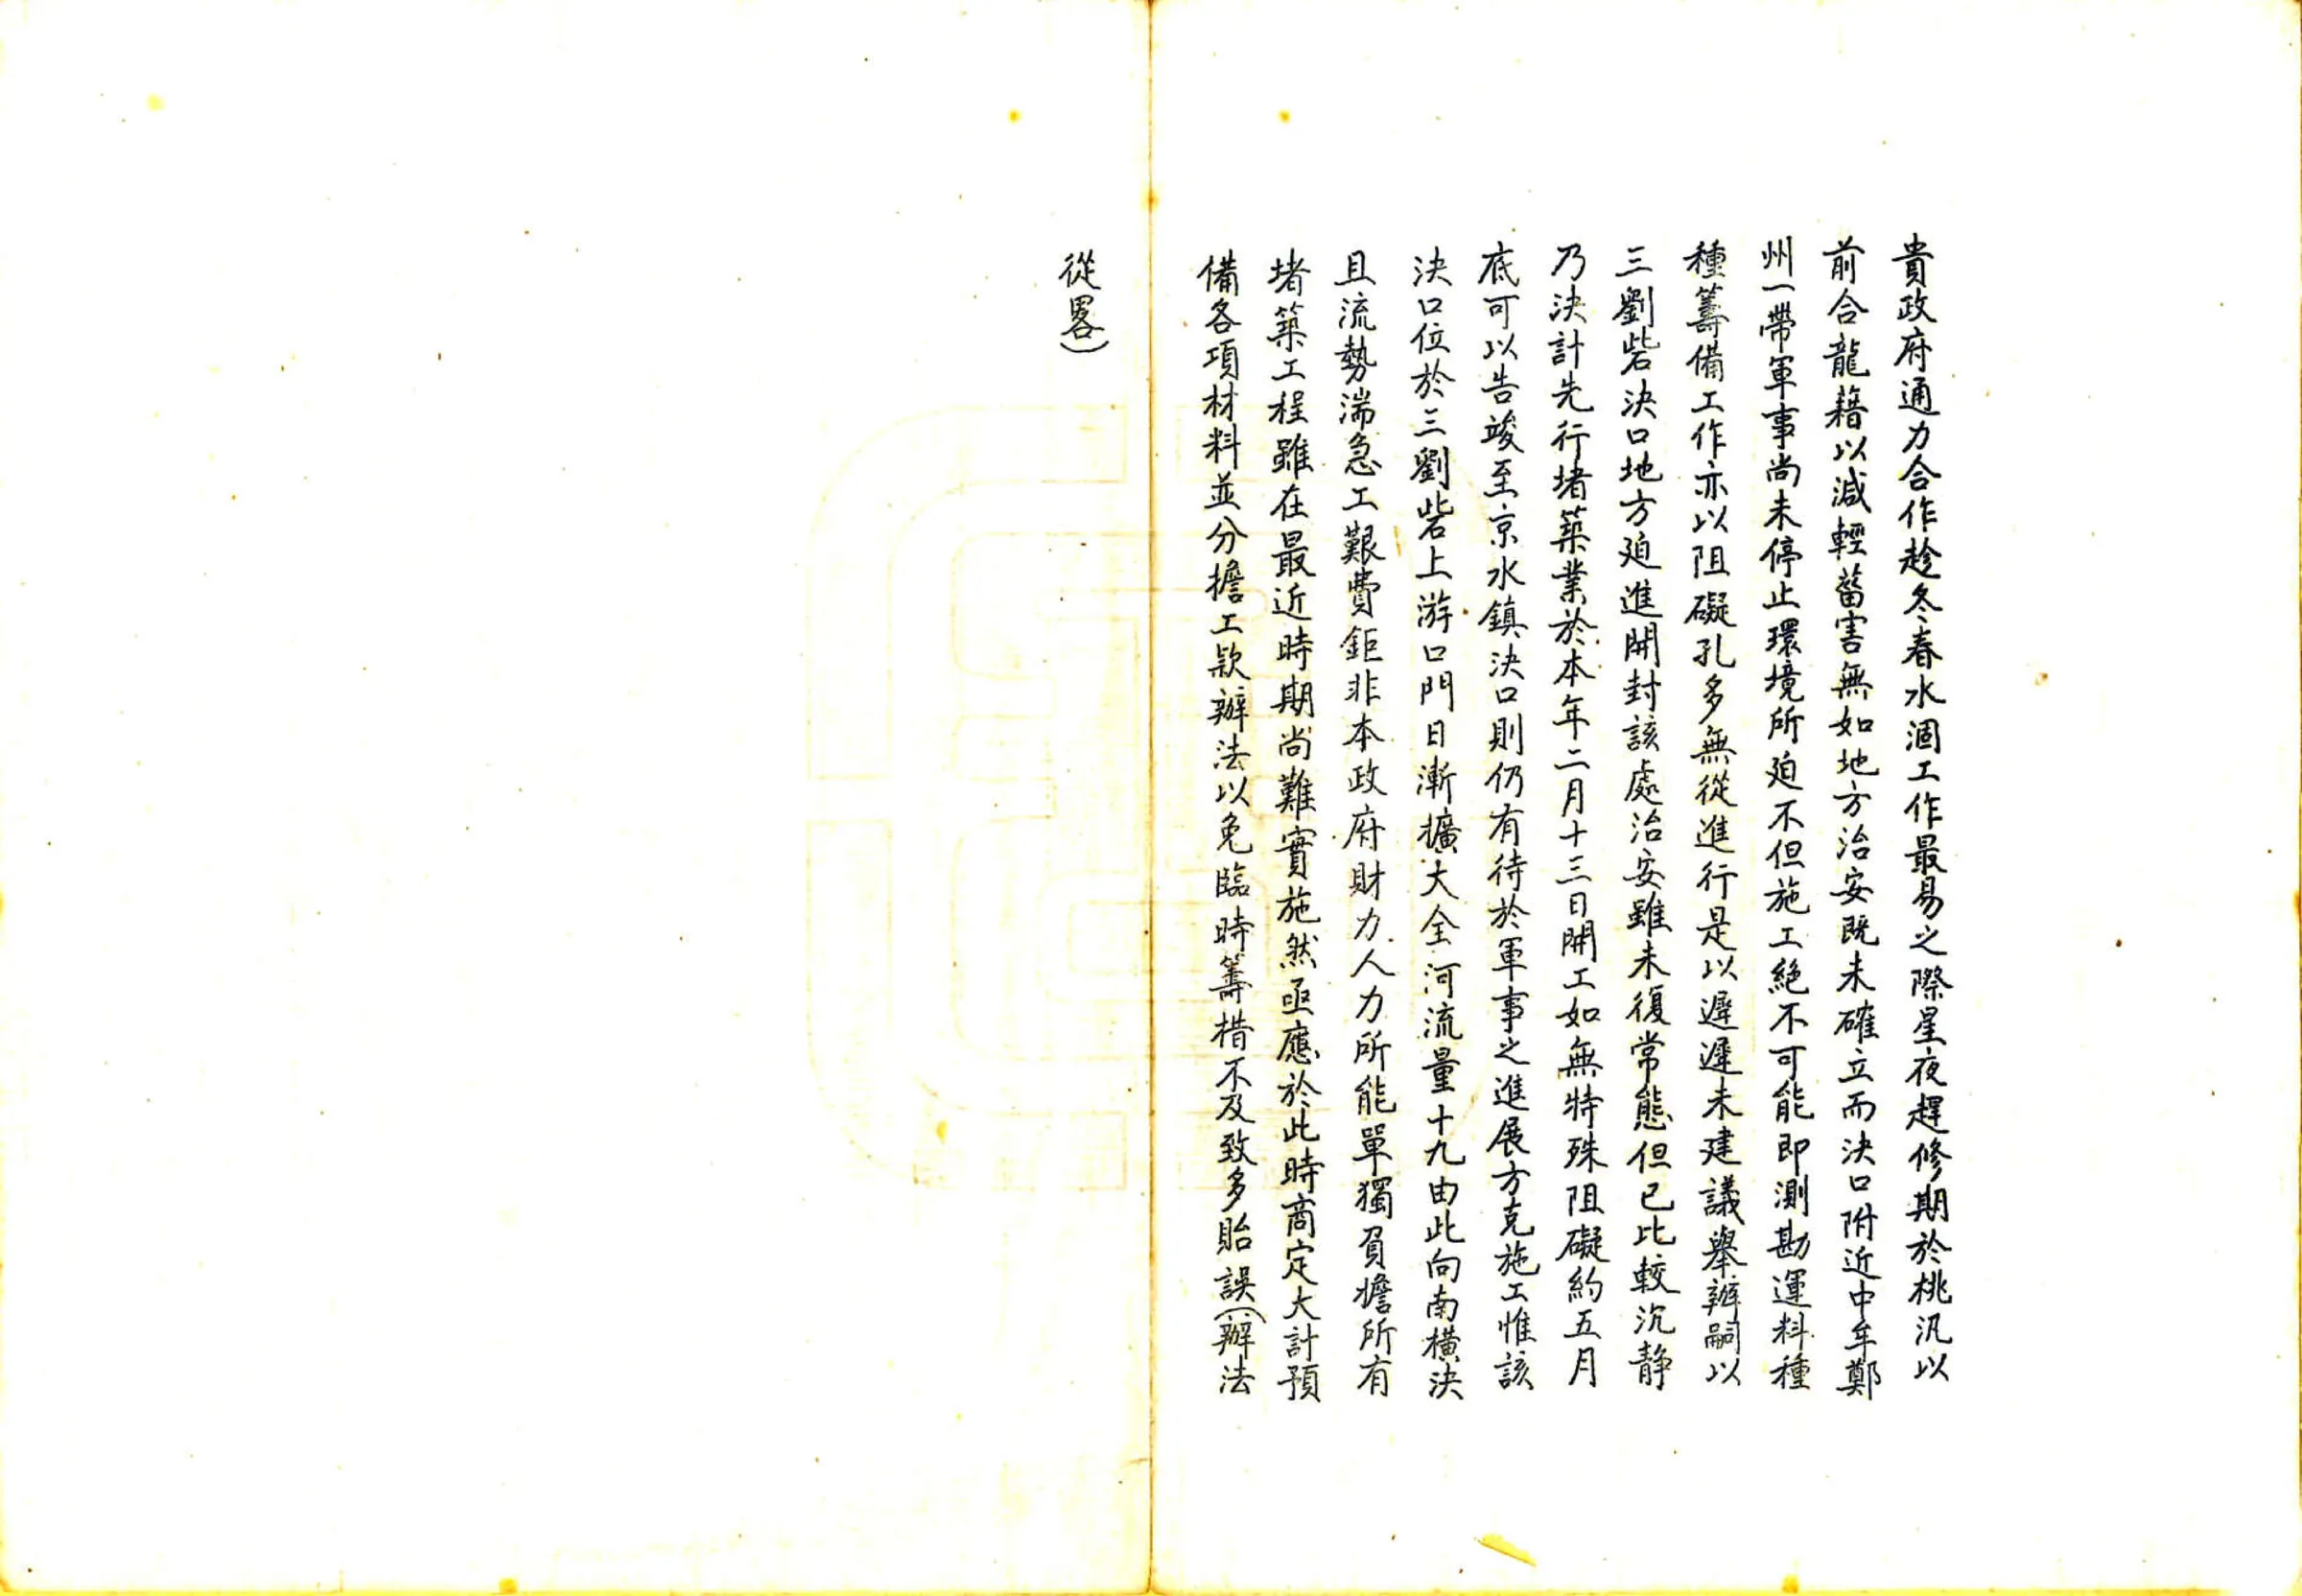 貴政府通力合作趁冬春水涸工作最易之際星夜趕修期於桃汛以
前合龍藉以減輕菑害無如地方治安既未確立而決口附近中牟鄭
州一帶軍事尚未停止環境所迫不但施工絕不可能即測勘運料種
種籌備工作亦以阻礙孔多無從進行是以遲遲未建議舉辦嗣以
三劉砦決口地方廹進開封該處治安雖未復常態但已比較沉静
乃決計先行堵築業於本年二月十三日開工如無特殊阻礙約五月
底可以告竣至京水鎮決口則仍有待於軍事之進展方克施工惟該
決口位於三劉砦上游口門日漸擴大全河流量十九由此向南橫決
且流勢湍急工艱費鉅非本政府財力人力所能單獨負擔所有
堵築工程雖在最近時期尚難實施然亟應於此時商定大計預
備各項材料並分擔工款辦法以免臨時籌措不及致多貽誤(辦法
從畧)